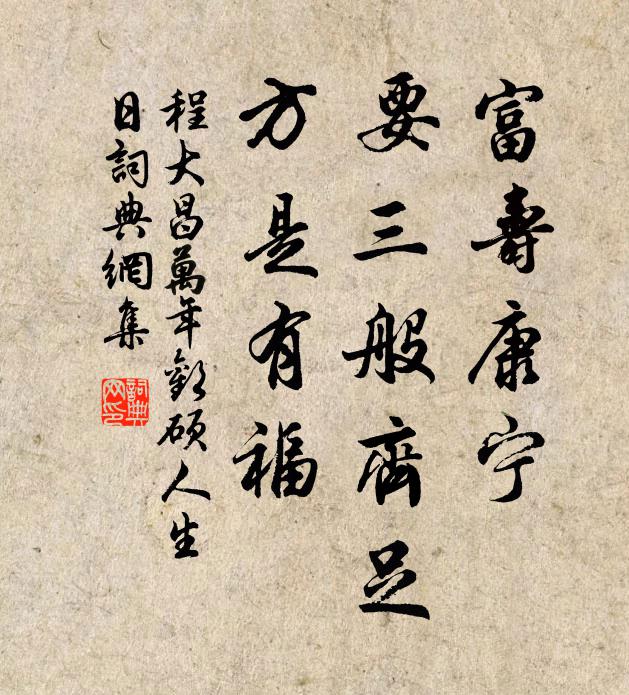 富壽康宁
要三般齊足
方是有福
程大昌萬年歡硕人生
日詞典網集
詞典網印